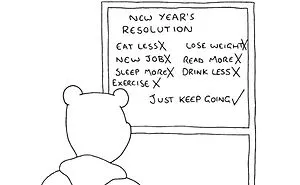 NEW YEAR'S
RESOLUTION
EAT LESS X LOSE WEIGHT X
NEW JOB X READ MORE X
SLEEP MORE X DRINK LESS X
EXERCISE X
JUST KEEP GOING ✓